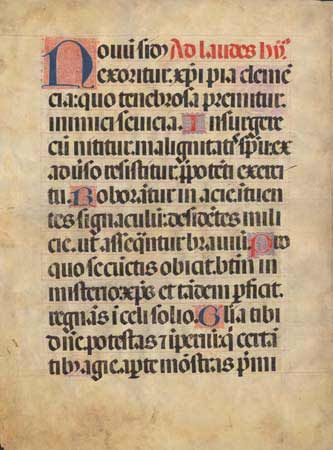 Novum sid⁹ Ad laudes hy̅⁹
exoritur. xp̅i pia cleme̅
cia: quo tenebrosa premitur.
inimici seuicia. Insurgere
cu̅ nititur. malignitat⁹ sp̅us ex
aduso resistitur. p̅pote̅ti exerci
tu. Roborat̅ur in acie. ituen
tes signaculu̅: deside̅tes mili
cie. ut asseq̅u̅ntur brauiu̅. Pro
quo se cunctis obicit. bt̅m in
misterio xp̅s et ta̅dem p̅ficit.
regna̅s i celi solio. Gl̅ia tibi
d̅n̅e. potestas ⁊ iperiu̅. q̅ certa̅
tib⁹ agie. aperte mo̅stras p̅mi